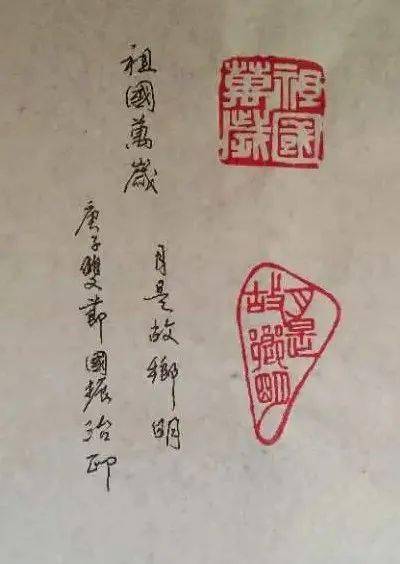 祖國
萬歲
月是
故鄉明
祖國萬歲
月是故鄉明
庚子雙節國振治印